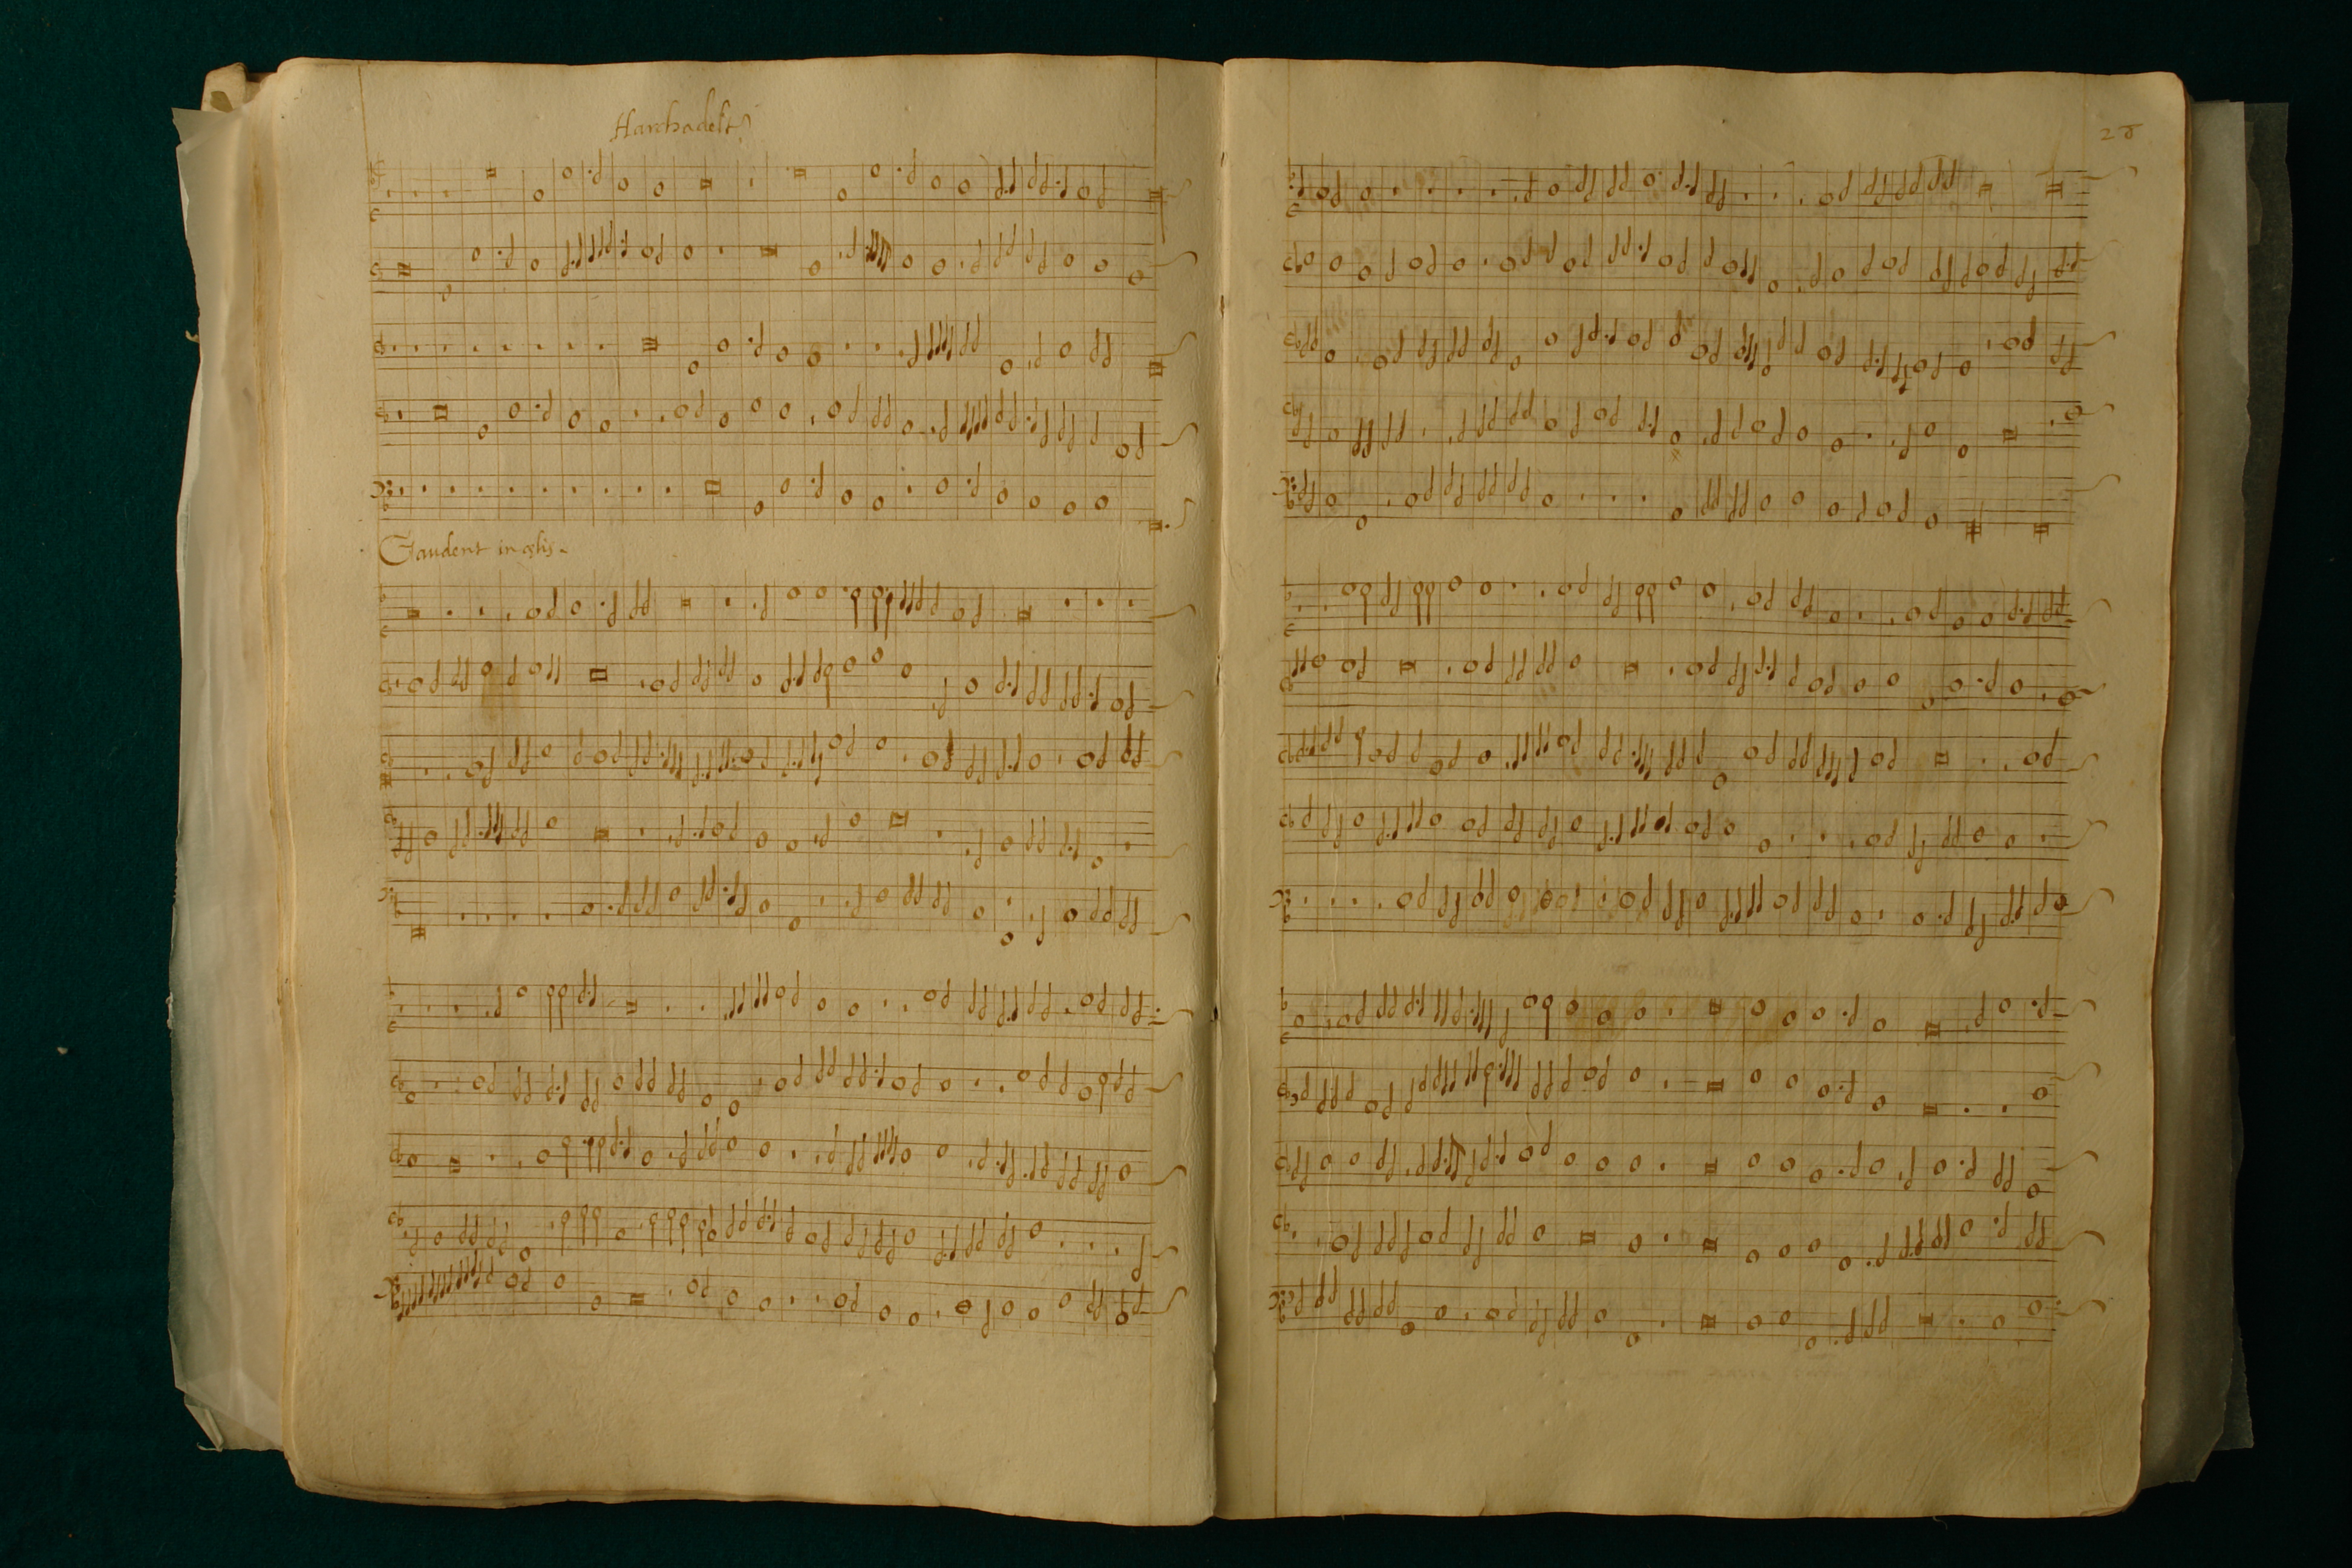 Harchadelt
Gaudent in celis.
28